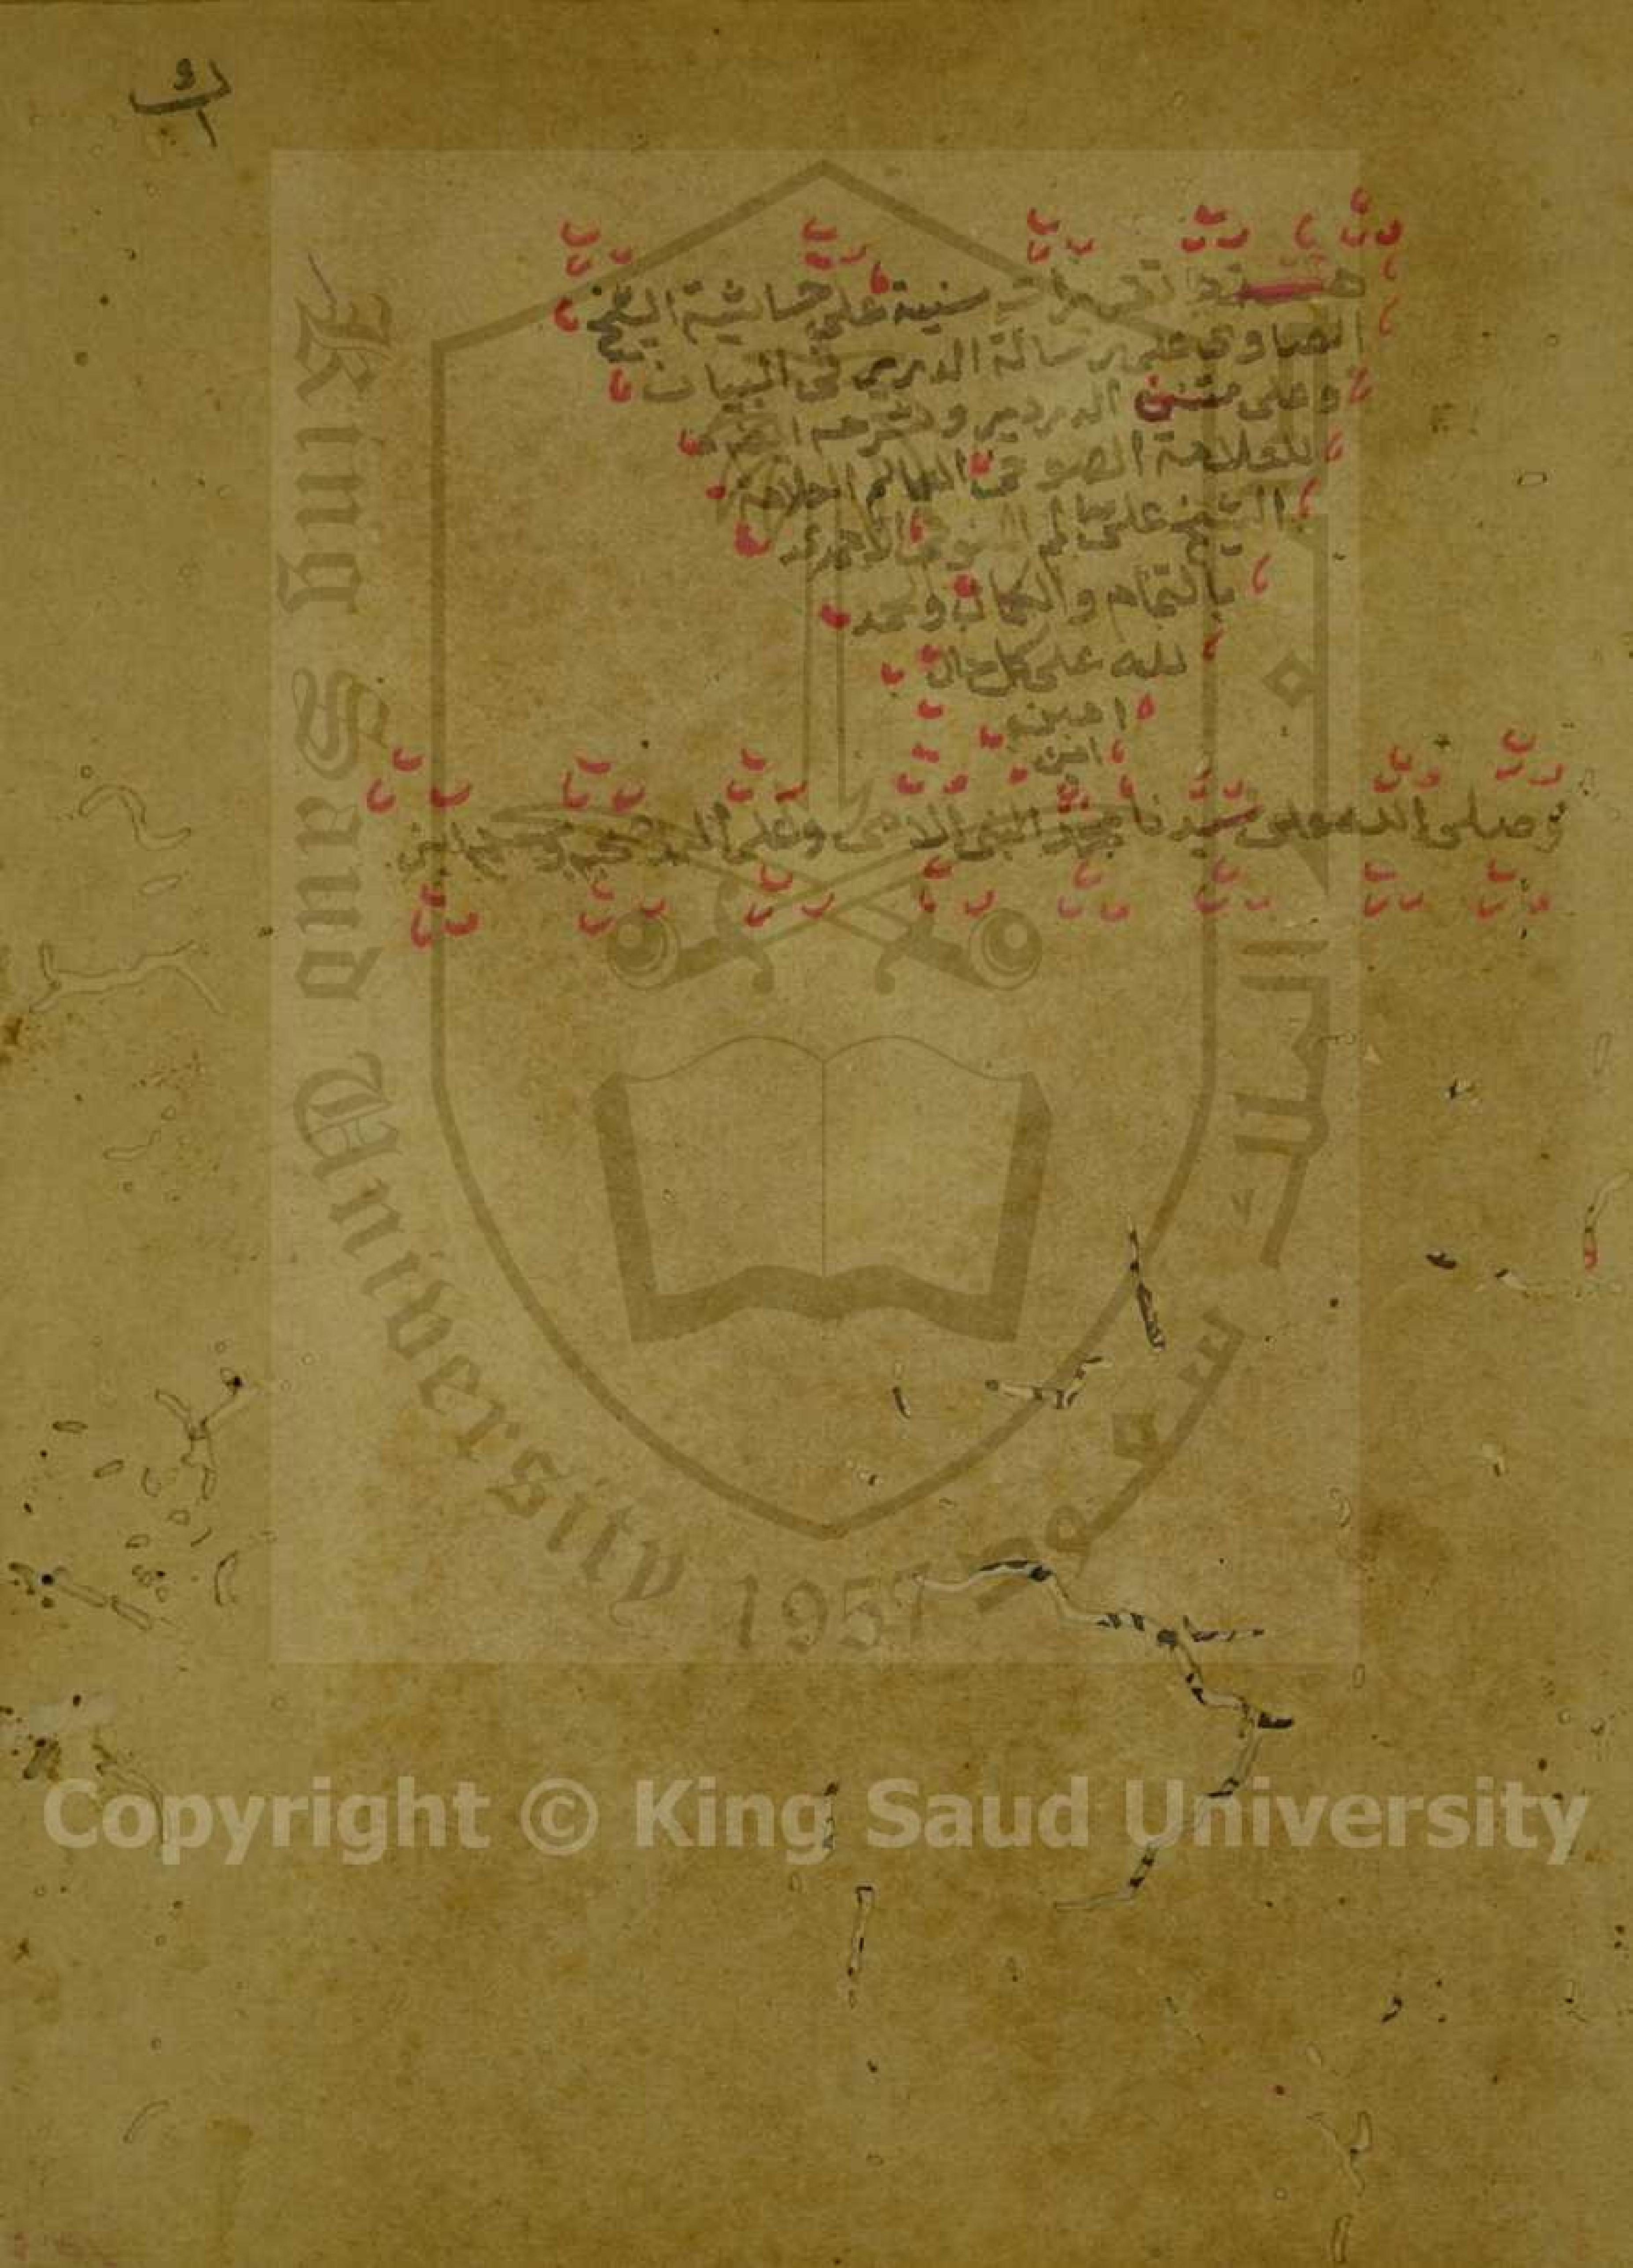 هذه تقريرات سنية على حاشية الشيخ
الصاوي على رسالة الدردير في البيان
وعلى متن الدردير وشرحه
للعلامة الصوفي العالم العلامة
الشيخ على
بالتمام والكمال والحمد
لله على كل حال
امين
امين
وصلى الله على سيدنا محمد النبي الامى وعلى اله
King Saud University 1957
Copyright © King Saud University